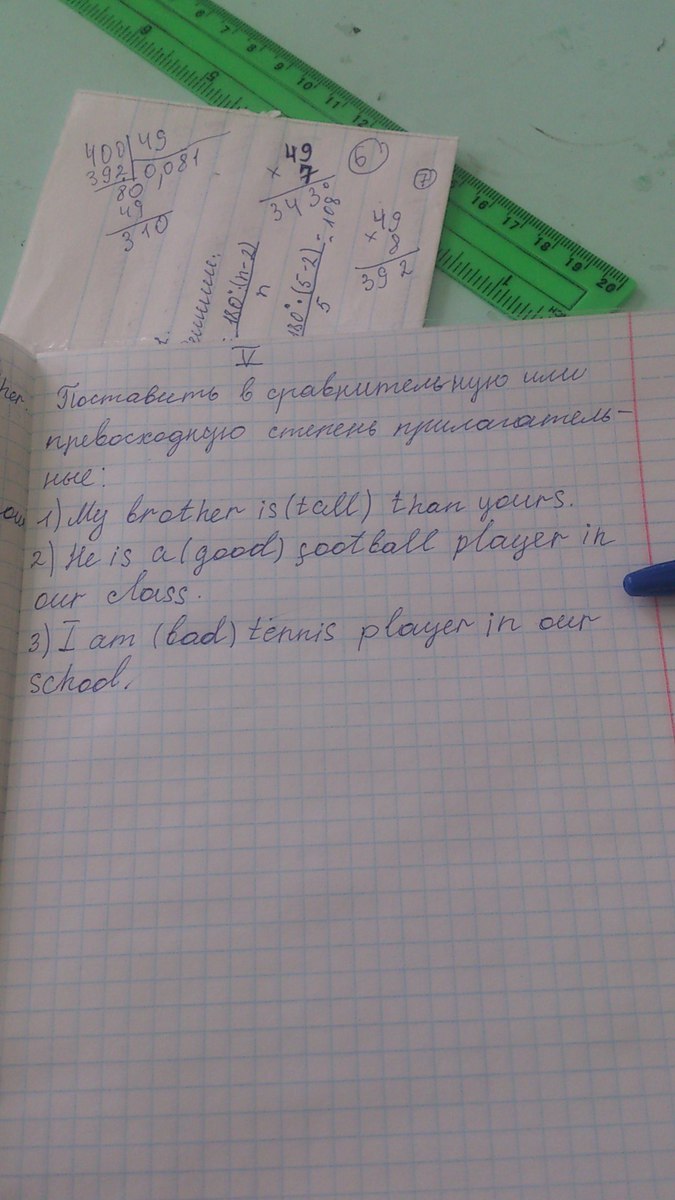 6
7
8
9
10
11
12
16
17
18
19
20
400 49
392 0,081
80
49
310
49
× 7
343
6
7
49
× 8
392
180°·(n-2)
n
180°·(5-2) = 108°
5
V
her.
Поставить в сравнительную или
превосходную степень прилагатель-
ные:
1) My brother is (tall) than yours.
2) He is a (good) football player in
our class.
3) I am (bad) tennis player in our
school.